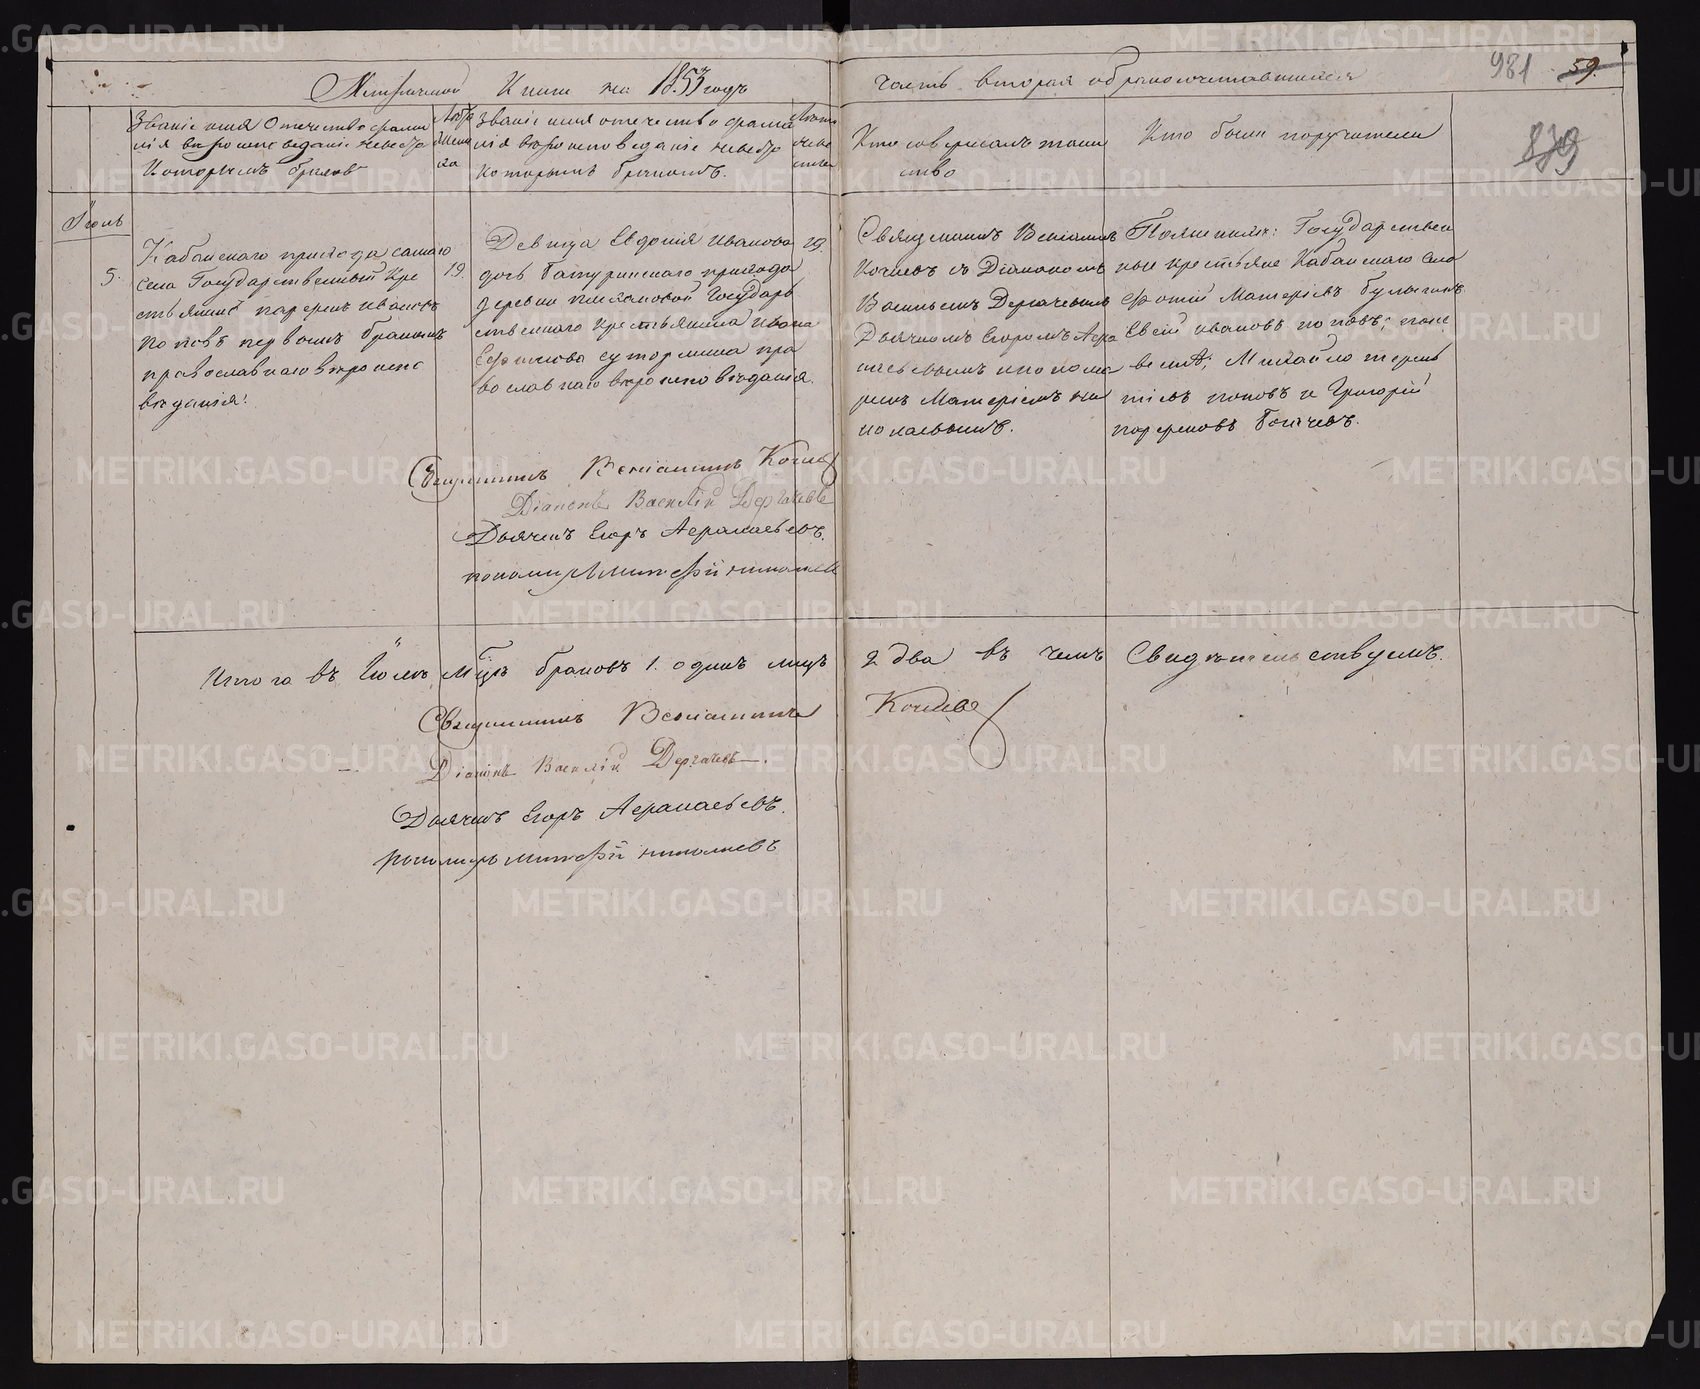 Метрической Книги на 1853 годъ
часть вторая о бракосочетавшихся
981 59.
879
Званіе имя Отечество фами
лія вѣроисповеданіе жениха
Которымъ бракомъ
Лѣта
жени
ха
Званіе имя отечество фами
лія вѣроисповеданіе невѣсты
которымъ бракомъ.
Лѣта
невѣ
сты
Кто совершалъ таин
ство
Кто были поручители
Іюль
5.
Кабанскаго прихода самаго
села Государственный Кре
стьянинъ парфенъ ивановъ
поповъ первымъ бракомъ
православнаго вѣроиспо
вѣданія.
19.
Девица Евдокія Иванова
дочь батуринскаго прихода
деревни Государ
ственнаго крестьянина ивана
Ефимова сутормина пра
вославнаго вѣроисповѣданія.
19.
Священникъ Веніаминъ
Кочневъ съ Діакономъ
Васильемъ Дергачевымъ
Дьячкомъ Егоромъ Афа
насьевымъ и понома
ремъ
николаевымъ.
По женихѣ: Государствен
ные крестьяне Кабанскаго села
Фотій Булыгинъ
Евсей ивановъ поповъ; по не
вестѣ; Михайло терен
тіевъ поповъ и Григорій
парфеновъ
Священникъ Веніаминъ Кочневъ
Діаконъ Василій Дергачевъ
Дьячекъ Егоръ Афанасьевъ.
пономарь николаевъ
Итого въ Іюлѣ мцѣ браковъ 1. одинъ лицъ 2 два въ чемъ Свидѣтельствуемъ.
Священникъ Веніаминъ Кочневъ
Діаконъ Василій Дергачевъ.
Дьячекъ Егоръ Афанасьевъ.
пономарь николаевъ
METRIKI.GASO-URAL.RU